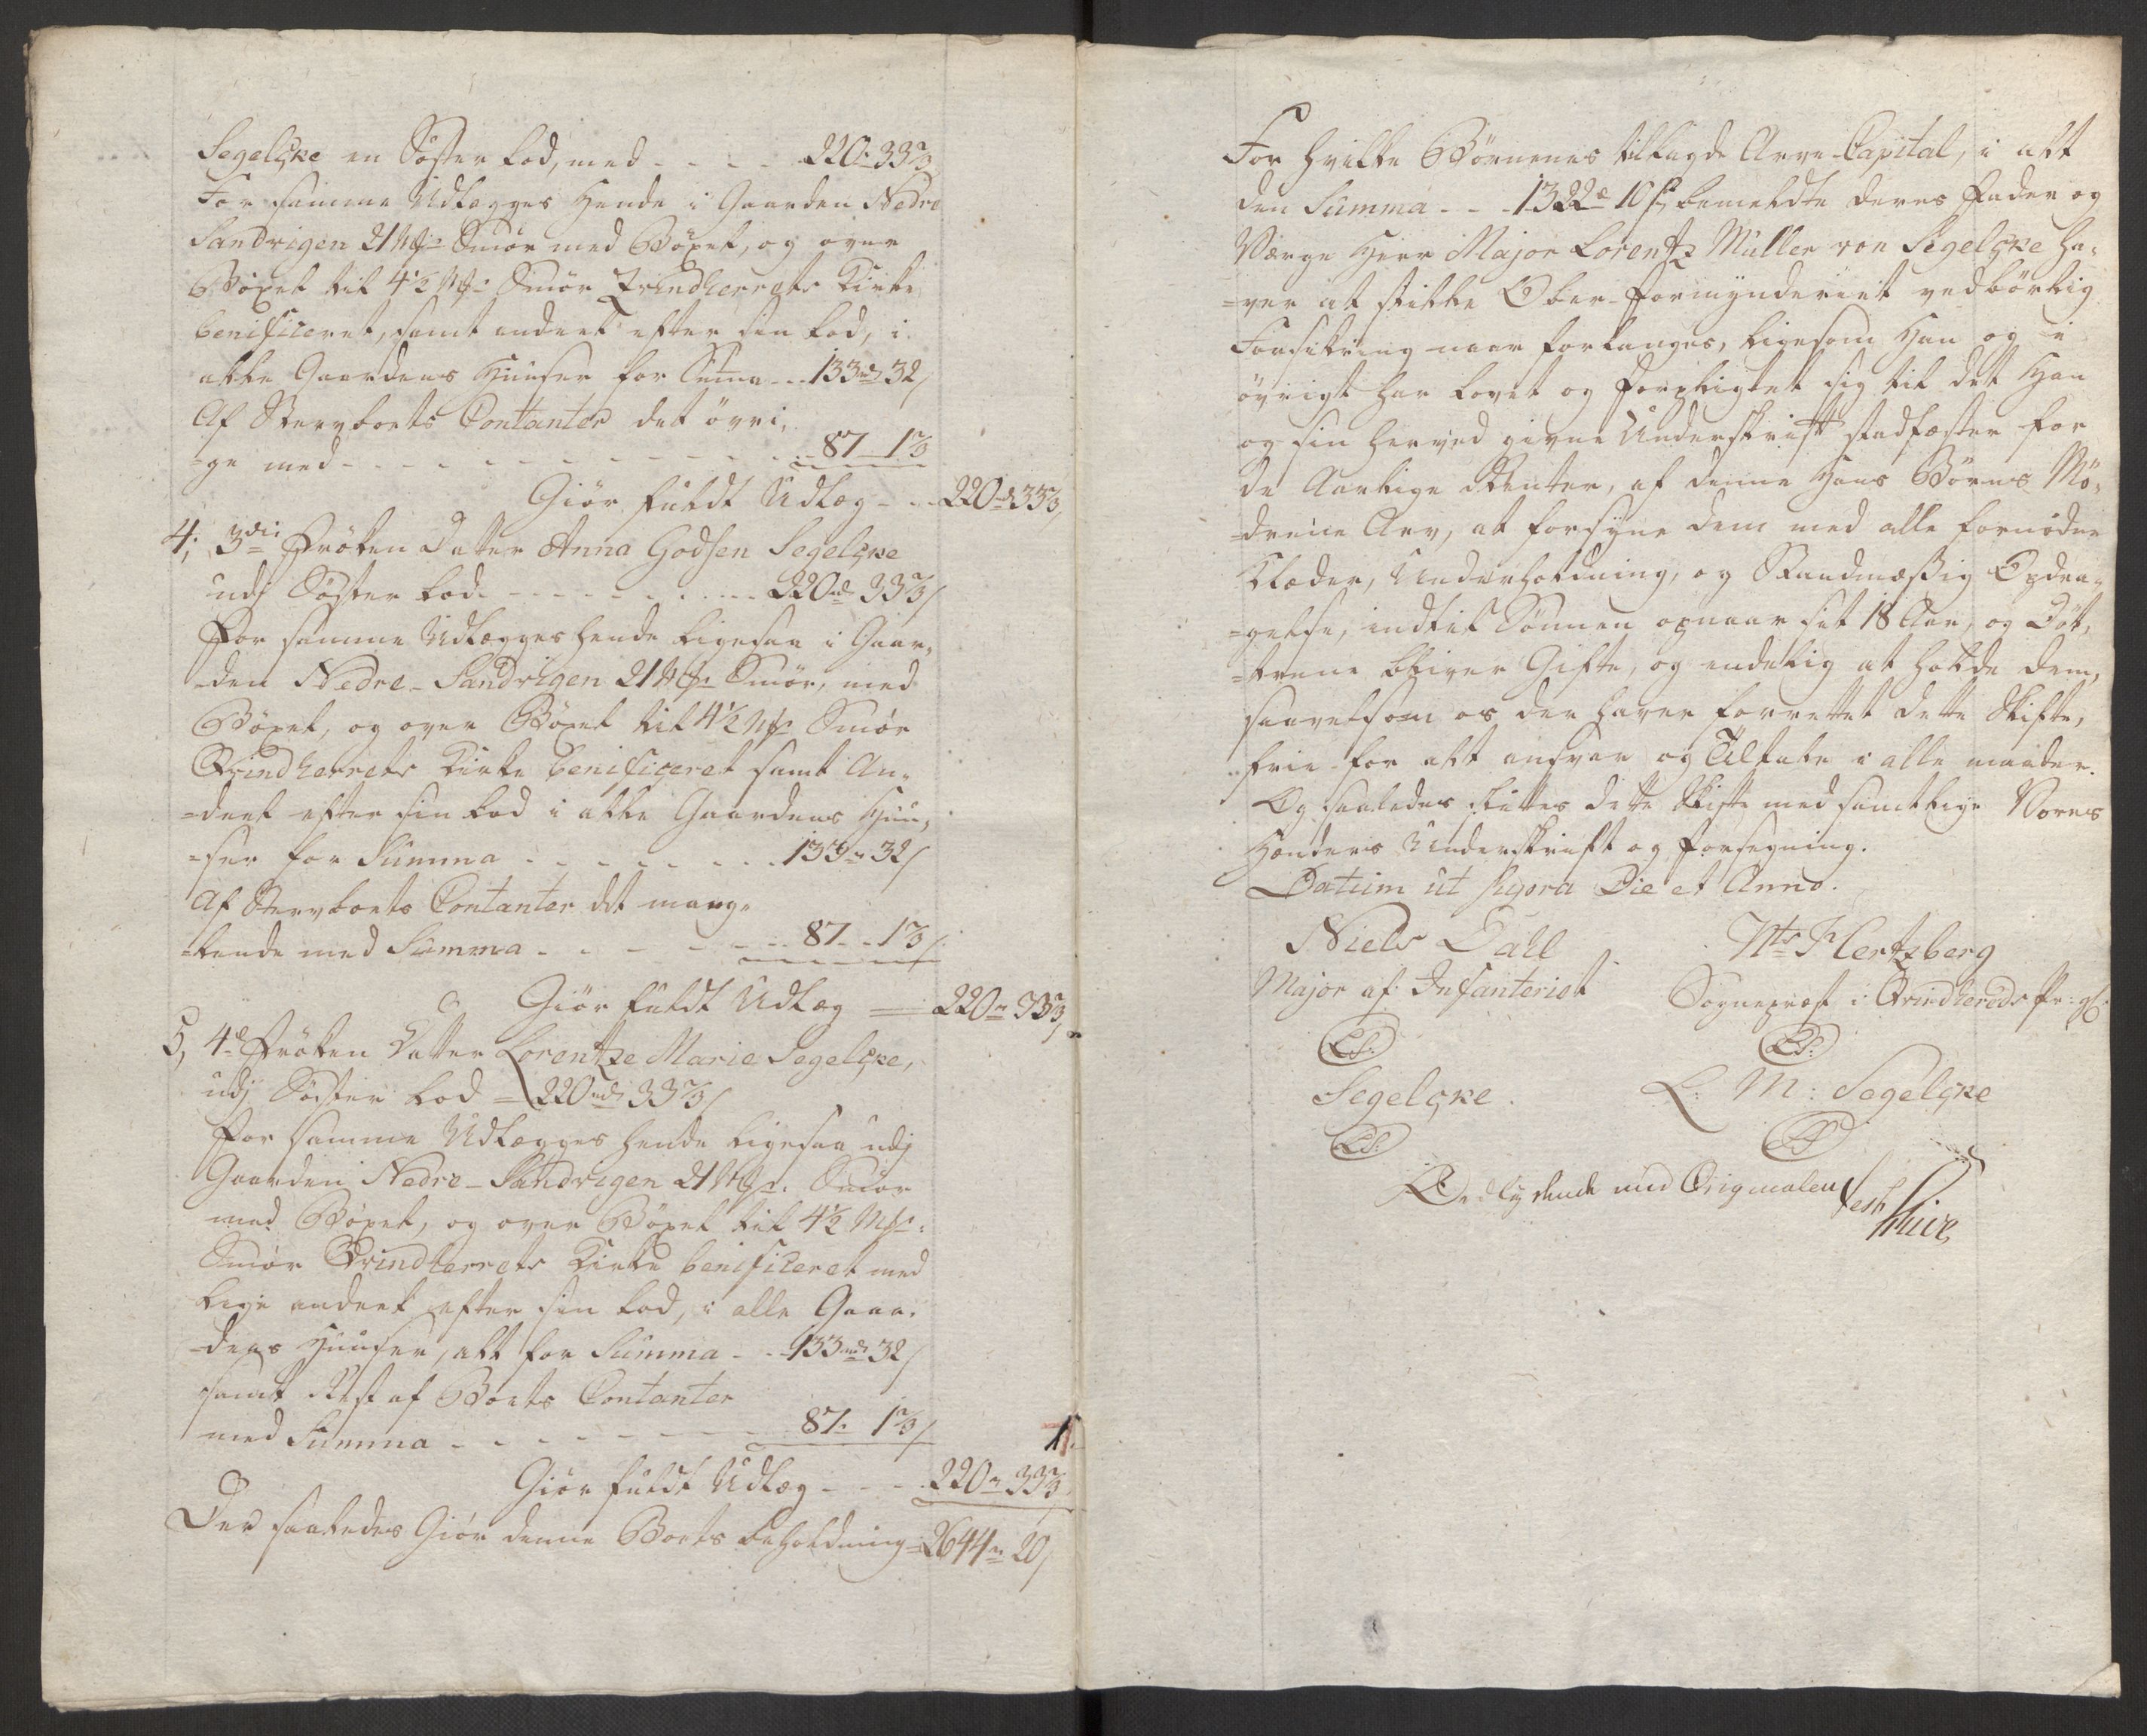 Segelcke en Søster Lod, med - - - - 220. 33⅔
For samme Udlegges Hende i Gaarden Nedre
Sandvigen 21 Mks Smør med Böxel, og over
Böxel til 4½ Mks Smør Qvindherrets Kirke
beneficeret, samt andeel efter sin Lod, i
alle Gaardens Huuser for Suma - - 133 rd 32 s
Af Stervboets Contanter det övri,
=ge med - - - - - - - - - 87 1⅔
Giör fuldt Udlæg - - 220 rd 33⅔
4, 3die Fröken Datter Anna Godsen Segelcke
udj Söster Lod. - - - - - - - - 220 rd 33⅔ s
For samme Udlegges hende ligesaa i Gaar,
=den Nedre-Sandvigen 21 Mks Smör, med
Böxel, og over Böxel til 4½ Mks Smör
Qvindherrets Kirke beneficeret samt An,
=deel efter sin Lod i alle Gaardens Huu,
=ser for Summa - - - - - - - 133 rd 32 s
Af Stervboets Contanter det mang,
=lende med Summa - - - - - - 87 - 1⅔ s
Giör fuldt Udlæg = 220 rd 33⅔
5, 4de Fröken Datter Lorentze Marie Segelcke,
udj Söster Lod = 220 rd 33⅔ s
For samme Udlegges hende ligesaa udj
Gaarden Nedre-Sandvigen 21 Mks. Smör
med Böxel, og over Böxel til 4½ Mks:
Smör Qvindherrets Kirke beneficeret med
lige andeel efter sin Lod, i alle Gaar,
=dens Huuser, alt for Summa - - 133 rd 32 s
samt Rest af Boets Contanter
med Summa - - - - - - - - 87. 1⅔ s
Giör fuldt Udlæg - - - 220 rd 33⅔
Der saaledes Giör denne Boets beholdning = 2644 rd 20 s
For hvilke Börnenes tillagde Arve-Capital, i alt
den Summa - - 1322 rd 10 s, bemeldte deres Fader og
Værge Herr Major Lorentz Müller von Segelcke ha,
=ver at stille Ober-Formynderiet vedbörlig
Forsikring naar forlanges, ligesom Han og i
övrigt har lovet og forpligtet sig til det Han
og sin herved givne Underskrift stadfæster for
de Aarlige Renter, af denne Hans Börns Mö,
=drene Arv, at forsyne dem med alle fornødne
Klæder, Underholdning, og Standmæssig Opdra,
=gelse, indtil Sönnen opnaar sit 18 Aar, og Döt,
=trene bliver Gifte, og endelig at holde dem,
saavelsom os der haver forrettet dette Skifte,
frie for alt ansvar og Tiltale i alle maader.
Og saaledes sluttes dette Skifte med samtlige Vores
Hænders Underskrift og forsegning.
Datum ut supra Die et Anno.
Niels Dall
Nls Hertzberg
Major af Infanteriet
Sognepræst i Qvindhereds Pr:gl:
LS.
LS.
Segelcke.
L: M: Segelcke
LS.
LS
Rigtig Lydende med Originalen test